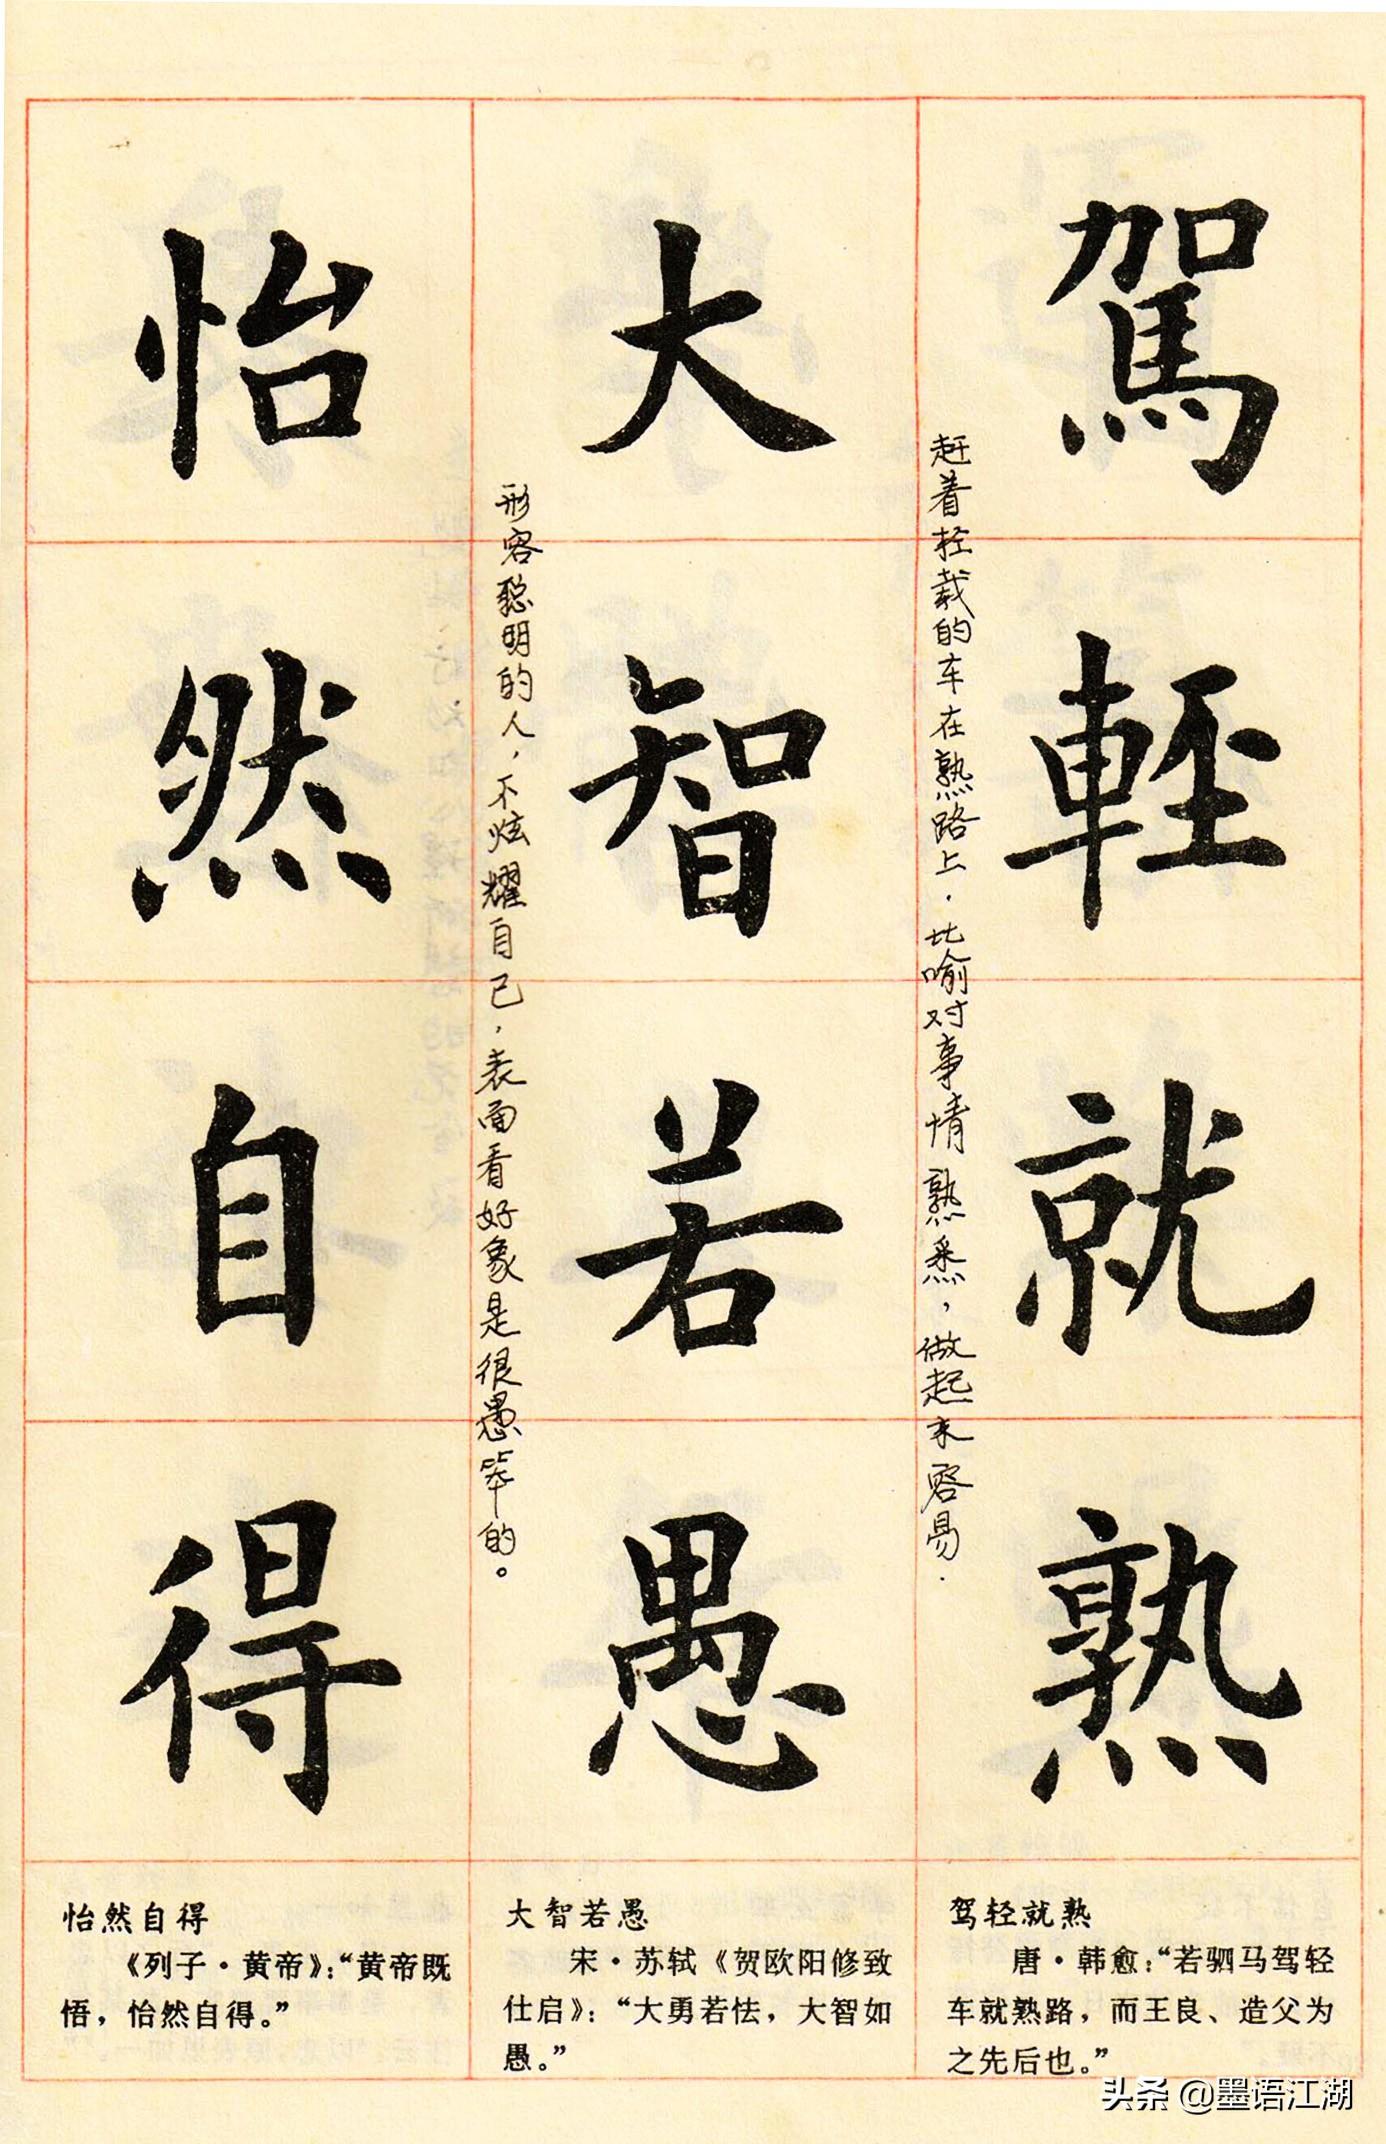 駕輕就熟
赶着轻载的车在熟路上.比喻对事情熟悉,做起来容易.
大智若愚
形容聪明的人,不炫耀自己,表面看好象是很愚笨的。
怡然自得
驾轻就熟
唐·韩愈：“若驷马驾轻
车就熟路，而王良、造父为
之先后也。”
大智若愚
宋·苏轼《贺欧阳修致
仕启》：“大勇若怯，大智如
愚。”
怡然自得
《列子·黄帝》：“黄帝既
悟，怡然自得。”
头条 @墨语江湖